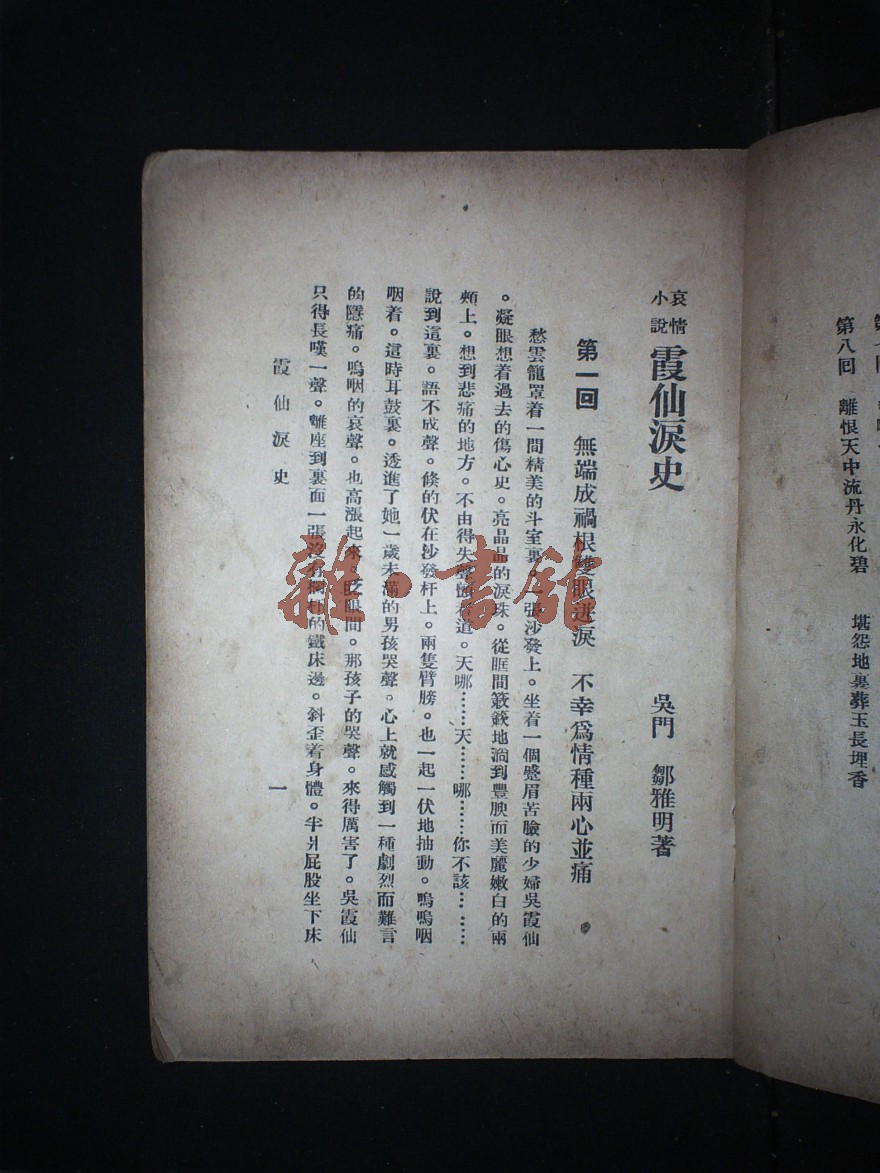 第八回　離恨天中流丹永化碧　堪怨地裏葬玉長埋香
哀情小說 霞仙淚史
吳門　鄒雅明著
第一回　無端成禍根雙眼迸淚　不幸爲情種兩心並痛
愁雲籠罩着一間精美的斗室裏。一張沙發上。坐着一個蹙眉苦臉的少婦吳霞仙
。凝眼想着過去的傷心史。亮晶晶的淚珠。從眶間簌簌地淌到豐腴而美麗嫩白的兩
頰上。想到悲痛的地方。不由得失聲道。天哪……天……哪……你不該………
說到這裏。語不成聲。倏的伏在沙發杆上。兩隻臂膀。也一起一伏地抽動。嗚嗚咽
咽着。這時耳鼓裏。透進了她一歲未滿的男孩哭聲。心上就感觸到一種劇烈而難言
的隱痛。嗚咽的哀聲。也高漲起來。眨眼間。那孩子的哭聲。來得厲害了。吳霞仙
只得長嘆一聲。離座到裏面一張沒有的鐵床邊。斜歪着身體。半爿屁股坐下床
霞仙淚史
一
雜·書館